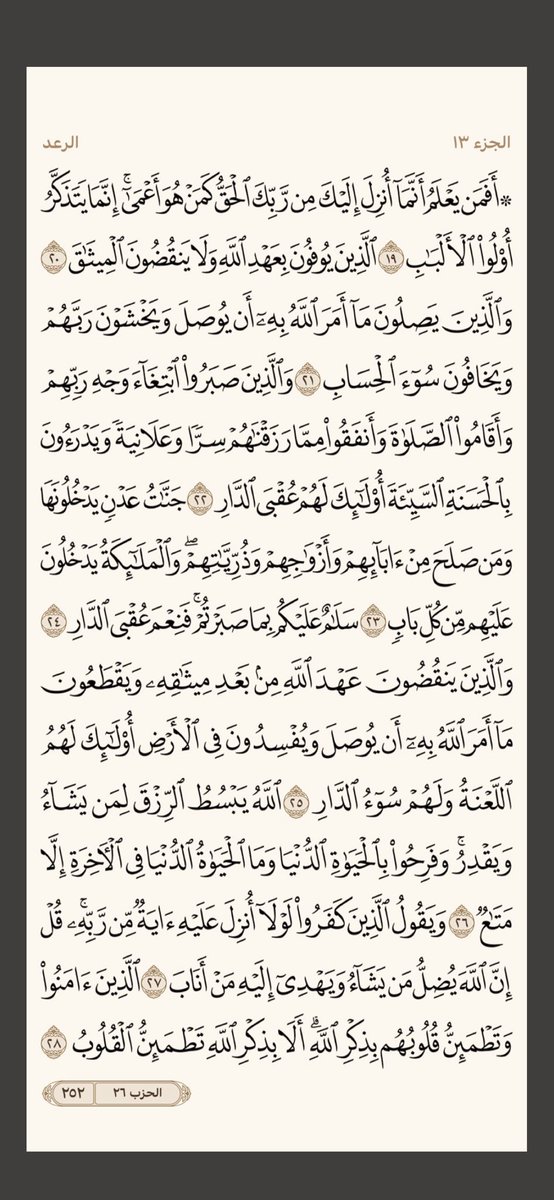 الجزء ١٣
الرعد
۞ أَفَمَن يَعْلَمُ أَنَّمَآ أُنزِلَ إِلَيْكَ مِن رَّبِّكَ ٱلْحَقُّ كَمَنْ هُوَ أَعْمَىٰٓ ۚ إِنَّمَا يَتَذَكَّرُ
أُو۟لُوا۟ ٱلْأَلْبَٰبِ ١٩ ٱلَّذِينَ يُوفُونَ بِعَهْدِ ٱللَّهِ وَلَا يَنقُضُونَ ٱلْمِيثَٰقَ ٢٠
وَٱلَّذِينَ يَصِلُونَ مَآ أَمَرَ ٱللَّهُ بِهِۦٓ أَن يُوصَلَ وَيَخْشَوْنَ رَبَّهُمْ
وَيَخَافُونَ سُوٓءَ ٱلْحِسَابِ ٢١ وَٱلَّذِينَ صَبَرُوا۟ ٱبْتِغَآءَ وَجْهِ رَبِّهِمْ
وَأَقَامُوا۟ ٱلصَّلَوٰةَ وَأَنفَقُوا۟ مِمَّا رَزَقْنَٰهُمْ سِرًّا وَعَلَانِيَةً وَيَدْرَءُونَ
بِٱلْحَسَنَةِ ٱلسَّيِّئَةَ أُو۟لَٰٓئِكَ لَهُمْ عُقْبَى ٱلدَّارِ ٢٢ جَنَّٰتُ عَدْنٍ يَدْخُلُونَهَا
وَمَن صَلَحَ مِنْ ءَابَآئِهِمْ وَأَزْوَٰجِهِمْ وَذُرِّيَّٰتِهِمْ ۖ وَٱلْمَلَٰٓئِكَةُ يَدْخُلُونَ
عَلَيْهِم مِّن كُلِّ بَابٍ ٢٣ سَلَٰمٌ عَلَيْكُم بِمَا صَبَرْتُمْ ۚ فَنِعْمَ عُقْبَى ٱلدَّارِ ٢٤
وَٱلَّذِينَ يَنقُضُونَ عَهْدَ ٱللَّهِ مِنۢ بَعْدِ مِيثَٰقِهِۦ وَيَقْطَعُونَ
مَآ أَمَرَ ٱللَّهُ بِهِۦٓ أَن يُوصَلَ وَيُفْسِدُونَ فِى ٱلْأَرْضِ أُو۟لَٰٓئِكَ لَهُمُ
ٱللَّعْنَةُ وَلَهُمْ سُوٓءُ ٱلدَّارِ ٢٥ ٱللَّهُ يَبْسُطُ ٱلرِّزْقَ لِمَن يَشَآءُ
وَيَقْدِرُ ۚ وَفَرِحُوا۟ بِٱلْحَيَوٰةِ ٱلدُّنْيَا وَمَا ٱلْحَيَوٰةُ ٱلدُّنْيَا فِى ٱلْءَاخِرَةِ إِلَّا
مَتَٰعٌ ٢٦ وَيَقُولُ ٱلَّذِينَ كَفَرُوا۟ لَوْلَآ أُنزِلَ عَلَيْهِ ءَايَةٌ مِّن رَّبِّهِۦ ۗ قُلْ
إِنَّ ٱللَّهَ يُضِلُّ مَن يَشَآءُ وَيَهْدِىٓ إِلَيْهِ مَنْ أَنَابَ ٢٧ ٱلَّذِينَ ءَامَنُوا۟
وَتَطْمَئِنُّ قُلُوبُهُم بِذِكْرِ ٱللَّهِ ۗ أَلَا بِذِكْرِ ٱللَّهِ تَطْمَئِنُّ ٱلْقُلُوبُ ٢٨
الحزب ٢٦
٢٥٢